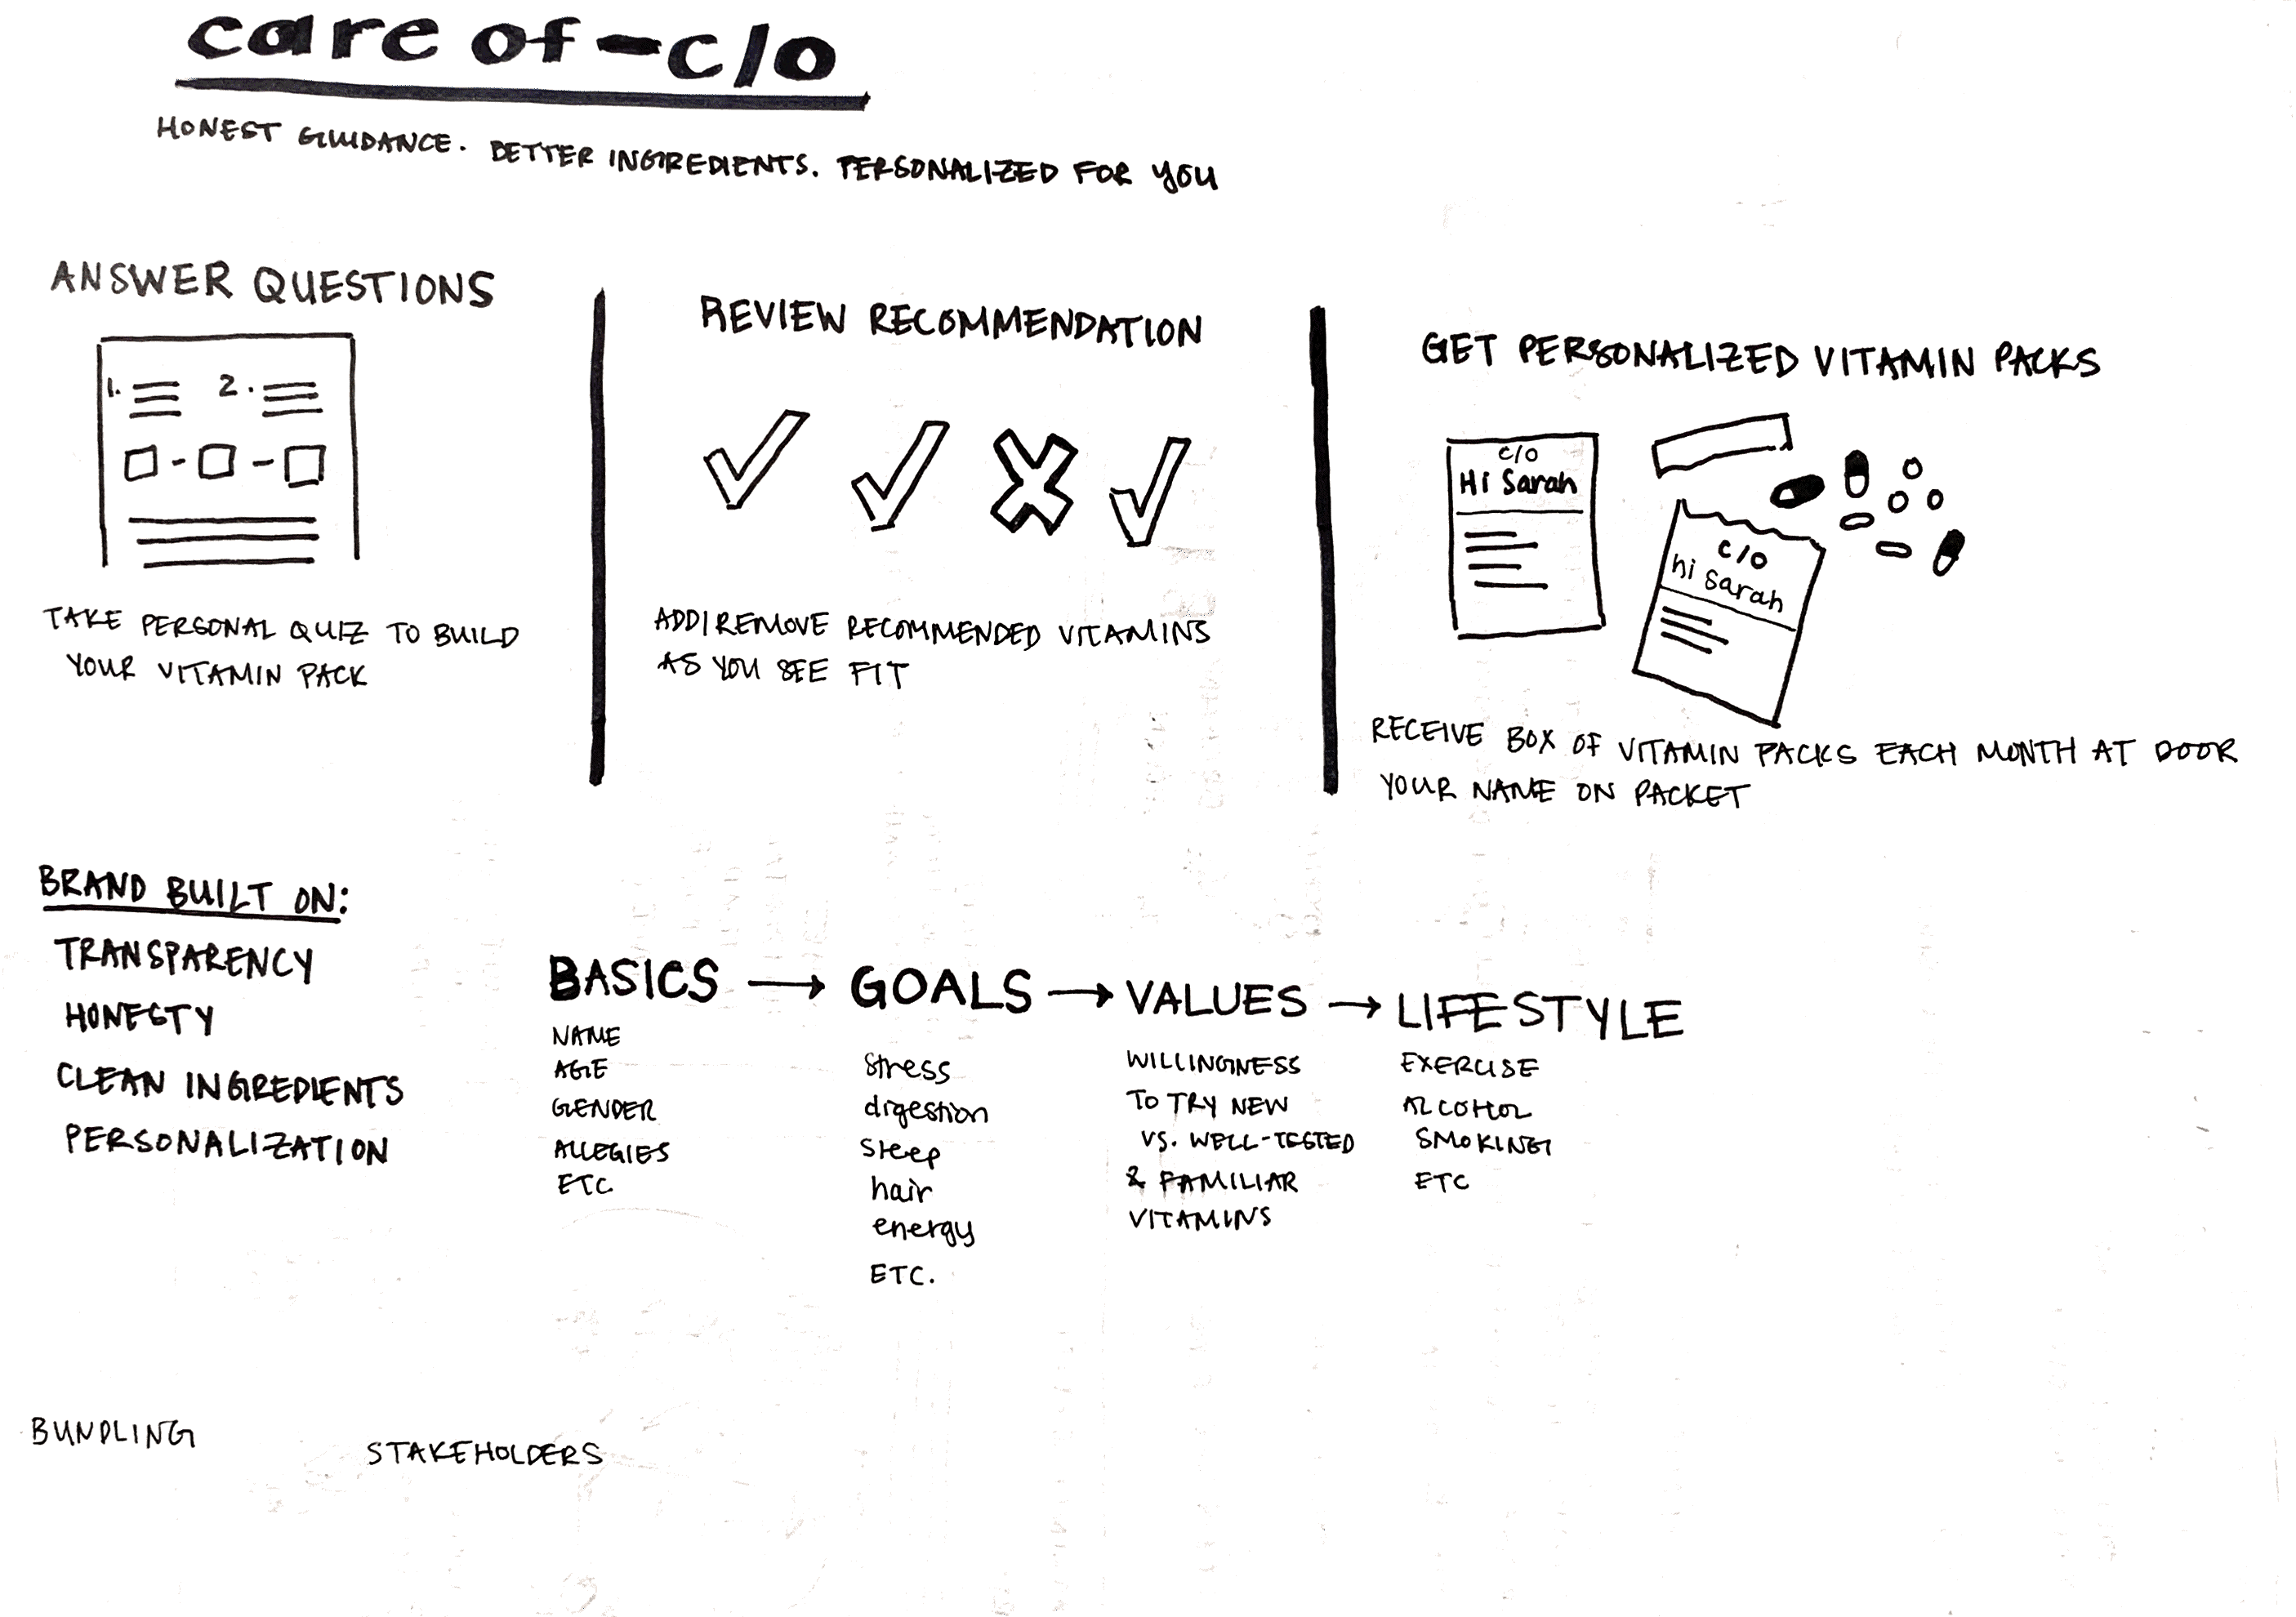 care of - c/o
HONEST GUIDANCE. BETTER INGREDIENTS. PERSONALIZED FOR YOU
ANSWER QUESTIONS
1. 2.
TAKE PERSONAL QUIZ TO BUILD
YOUR VITAMIN PACK
REVIEW RECOMMENDATION
ADD/REMOVE RECOMMENDED VITAMINS
AS YOU SEE FIT
GET PERSONALIZED VITAMIN PACKS
c/o
Hi Sarah
c/o
hi Sarah
RECEIVE BOX OF VITAMIN PACKS EACH MONTH AT DOOR
YOUR NAME ON PACKET
BRAND BUILT ON:
TRANSPARENCY
HONESTY
CLEAN INGREDIENTS
PERSONALIZATION
BASICS → GOALS → VALUES → LIFESTYLE
NAME
AGE
GENDER
ALLEGIES
ETC
stress
digestion
sleep
hair
energy
ETC.
WILLINGNESS
TO TRY NEW
VS. WELL-TESTED
& FAMILIAR
VITAMINS
EXERCISE
ALCOHOL
SMOKING
ETC
BUNDLING
STAKEHOLDERS